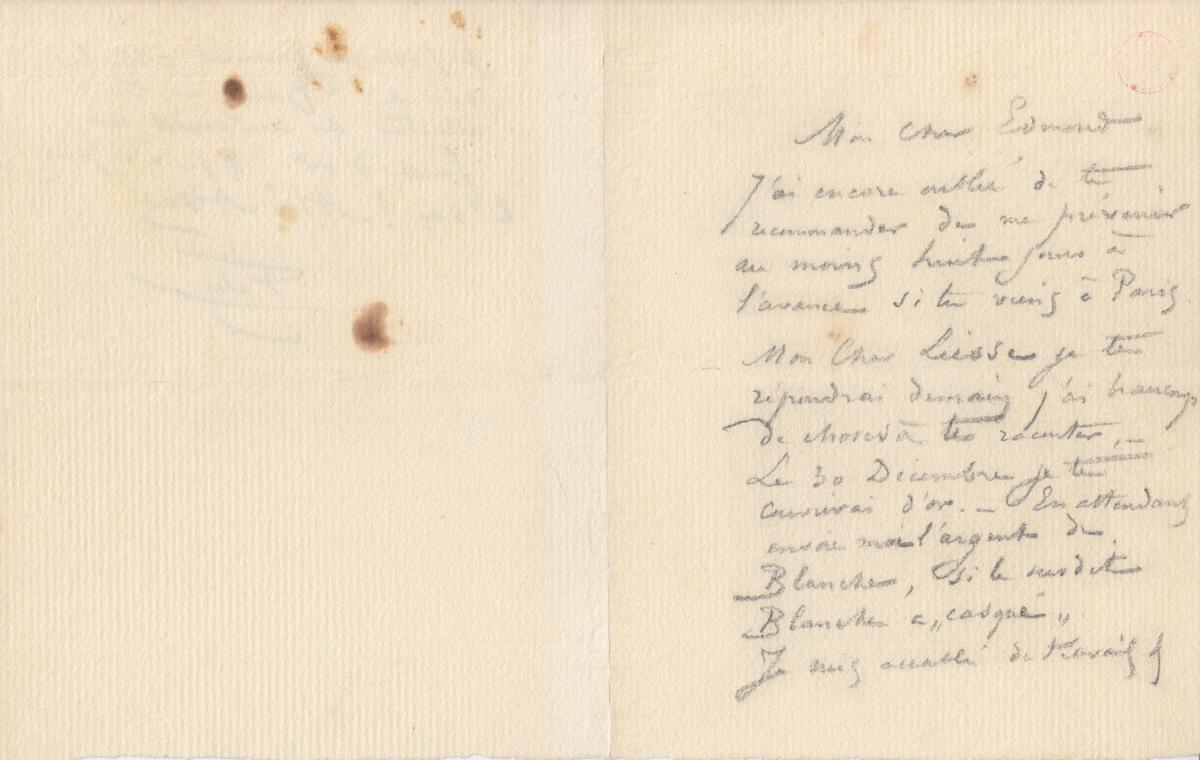 Mon cher Edmond
J'ai encore oublié de te
recommander de me prévenir
au moins huit jours à
l'avance si tu viens à Paris.
Mon Cher Liesse je te
répondrai demain j'ai beaucoup
de choses à te raconter, –
Le 30 Décembre je te
couvrirai d'or. – En attendant
envoie moi l'argent de
Blanche, si le susdit
Blanche a „casqué„.
Je suis accablé de travail &